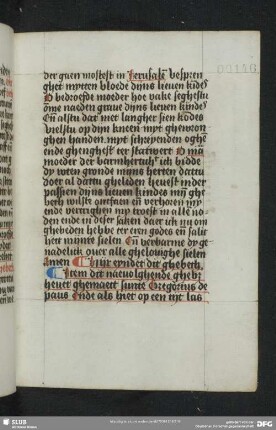 der gaen mostest in Jerusalē bespren
ghet mytten bloede dijns lieuen kīdes
O bedroefde moeder hoe vake seghestu
ōme naeden graue dijns lieuen kindes
Eñ alstu dat niet langher sien kōdes
vielstu op dijn knien myt ghewron
ghen handen myt schreyenden oghe
ende ghenghest ter statwert O mi
moeder der barmhertich ich bidde
dy wten gronde mijns herten dattu
doer al dattu gheliden heuest inder
passien dijns lieuen kindes mij ghe
beth wilste ontfaen eñ verhoren my
ende vertraghen my troest in alle no
den ende in deser saken daer ich nu om
ghebeden hebbe ter eren godes eñ salic
heit mijnre sielen Eñ verbarme dy ge
nadelick ouer alle gheloughe sielen
Amen Hijr eyndet dit ghebeth.
Item dit nauolghende ghebet
heuet ghemaect sunte Gregorius de
paus Ende als hiet op een tijt las
00146
SLUB
DFG